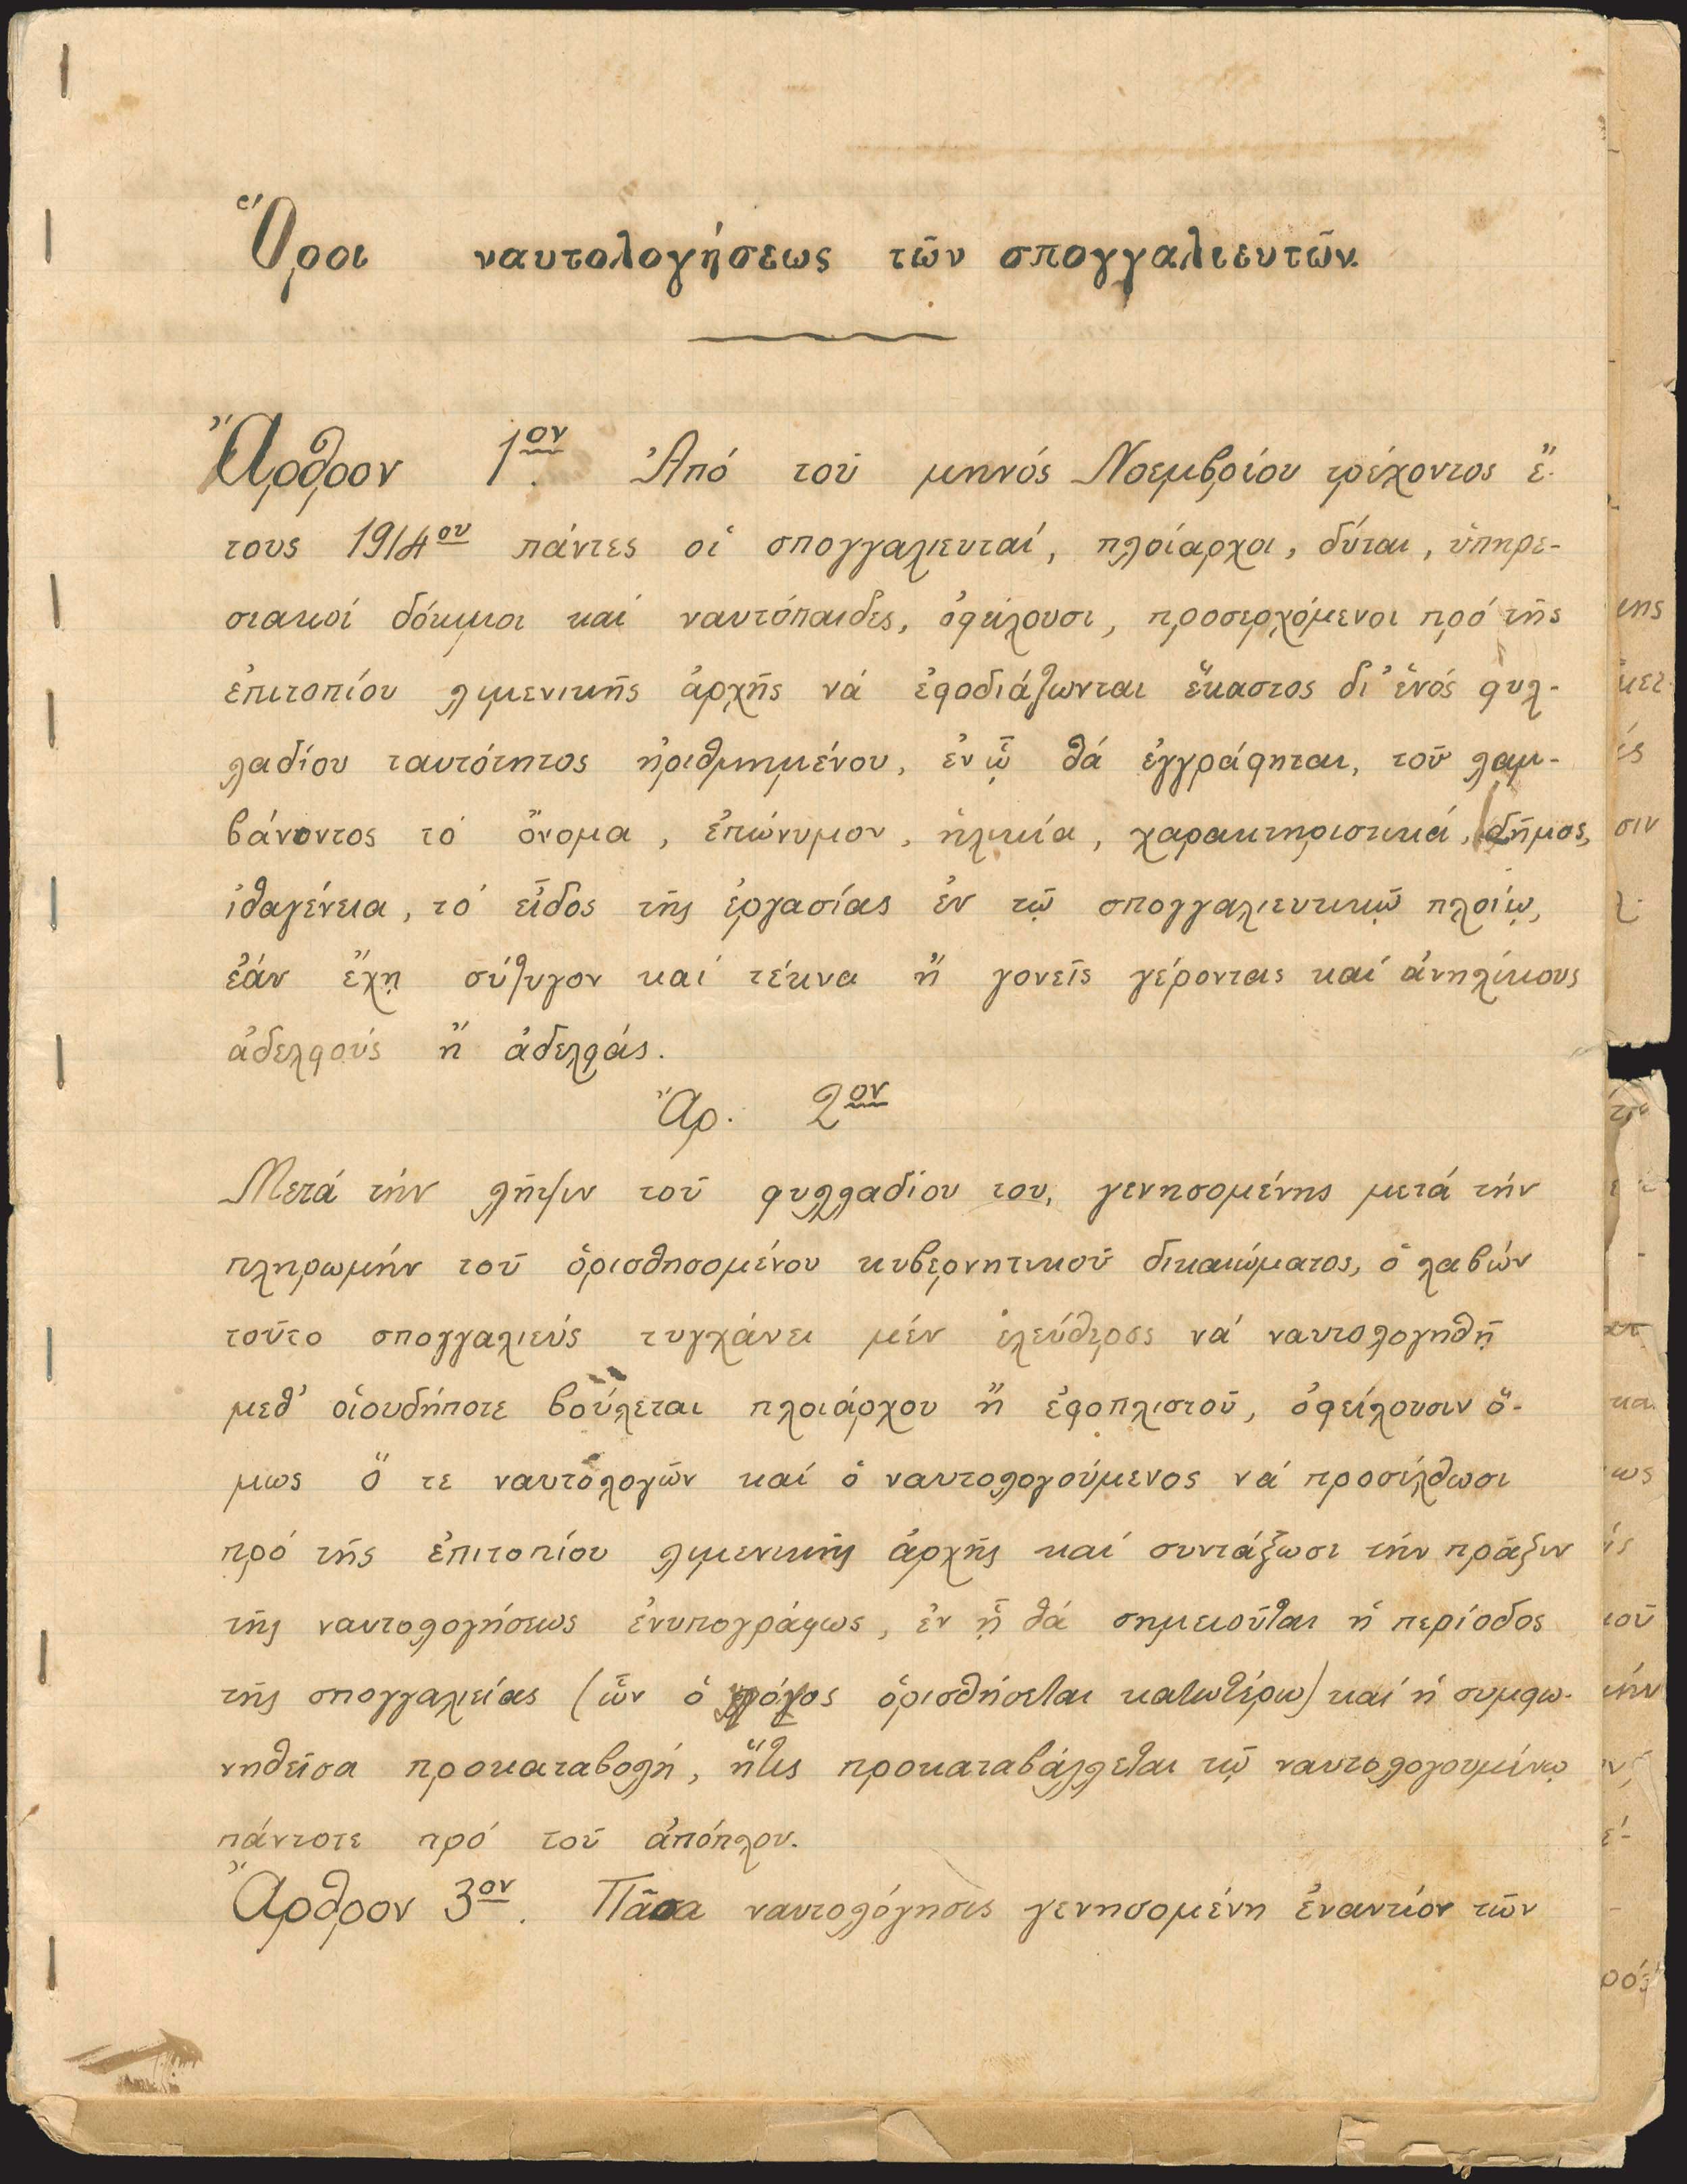 Ὅροι ναυτολογήσεως τῶν σπογγαλιευτῶν.
Ἄρθρον 1ον. Ἀπό τοῦ μηνός Νοεμβρίου τρέχοντος ἔ-
τους 1914ου πάντες οἱ σπογγαλιευταί, πλοίαρχοι, δύται, ὑπηρε-
σιακοί δόκιμοι καί ναυτόπαιδες, ὀφείλουσι, προσερχόμενοι πρό τῆς
ἐπιτοπίου λιμενικῆς ἀρχῆς νά ἐφοδιάζωνται ἕκαστος δι' ἑνός φυλ-
λαδίου ταυτότητος ἠριθμημένου, ἐν ᾧ θά ἐγγράφηται, τοῦ λαμ-
βάνοντος τό ὄνομα, ἐπώνυμον, ἡλικία, χαρακτηριστικά, δῆμος,
ἰθαγένεια, τό εἶδος τῆς ἐργασίας ἐν τῷ σπογγαλιευτικῷ πλοίῳ,
ἐάν ἔχῃ σύζυγον καί τέκνα ἤ γονεῖς γέροντας καί ἀνηλίκους
ἀδελφούς ἤ ἀδελφάς.
Ἄρ. 2ον
Μετά τήν λῆψιν τοῦ φυλλαδίου του, γενησομένης μετά τήν
πληρωμήν τοῦ ὁρισθησομένου κυβερνητικοῦ δικαιώματος, ὁ λαβών
τοῦτο σπογγαλιεύς τυγχάνει μέν ἐλεύθερος νά ναυτολογηθῇ
μεθ' οἱουδήποτε βούλεται πλοιάρχου ἤ ἐφοπλιστοῦ, ὀφείλουσιν ὅ-
μως ὅ τε ναυτολογῶν καί ὁ ναυτολογούμενος νά προσέλθωσι
πρό τῆς ἐπιτοπίου λιμενικῆς ἀρχῆς καί συντάξωσι τήν πρᾶξιν
τῆς ναυτολογήσεως ἐνυπογράφως, ἐν ᾗ θά σημειοῦται ἡ περίοδος
τῆς σπογγαλιείας (ὧν ὁ ὁρισθήσεται κατωτέρω) καί ἡ συμφω-
νηθεῖσα προκαταβολή, ἥτις προκαταβάλλεται τῷ ναυτολογουμένῳ
πάντοτε πρό τοῦ ἀπόπλου.
Ἄρθρον 3ον. Πᾶσα ναυτολόγησις γενησομένη ἐναντίον τῶν